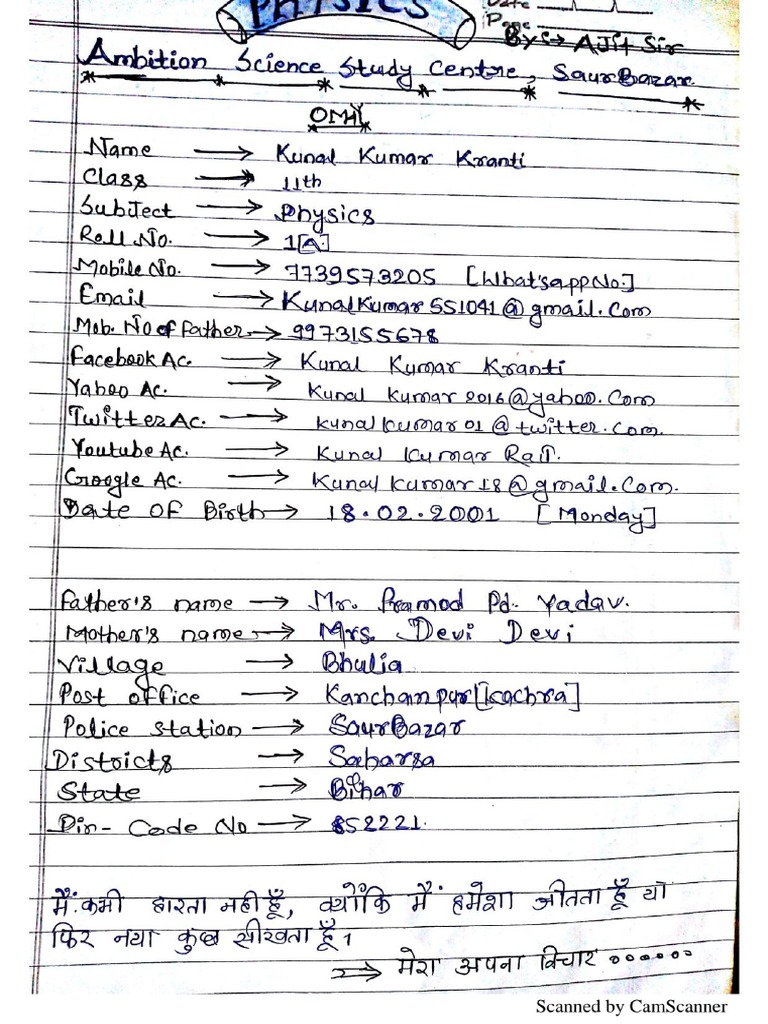 PHYSICS
Date
Page
By:→ AJit Sir
Ambition Science Study Centre, SaurBazar
Name → Kunal Kumar Kranti
Class → 11th
SubJect → Physics
Roll No. → 1[A]
Mobile No. → 7739573205 [What'sapp No.]
Email → KunalKumar551041@gmail.Com
Mob. No of father → 9973155678
Facebook Ac. → Kunal Kumar Kranti
Yahoo Ac. → Kunal kumar2016@yahoo.Com
Twitter Ac. → kunalkumar01@twitter.com.
Youtube Ac. → Kunal Kumar RaJ.
Google Ac. → Kunalkumar18@gmail.Com.
Date OF Birth → 18.02.2001 [Monday]
Father's name → Mr. Pramod Pd. Yadav.
Mother's name → Mrs. Devi Devi
Village → Bhulia
Post office → Kanchanpur[kachra]
Police station → SaurBazar
Districts → Saharsa
State → Bihar
Pin-Code No → 852221.
मैं कभी हारता नहीं हूँ, क्योंकि मैं हमेशा जीतता हूँ या
फिर नया कुछ सीखता हूँ।
⇒ मेरा अपना विचार ००००००
Scanned by CamScanner